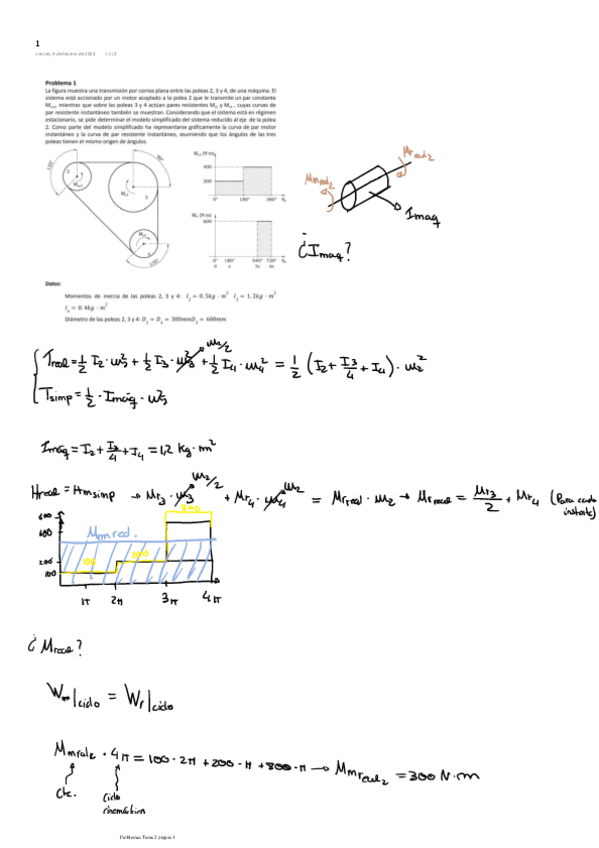 1
Problema 1
La figura muestra una transmisión por correa plana entre las poleas 2, 3 y 4, de una máquina. El
sistema está accionado por un motor acoplado a la polea 2 que le transmite un par constante
Mm2, mientras que sobre las poleas 3 y 4 actúan pares resistentes Mr3 y Mr4, cuyas curvas de
par resistente instantáneo también se muestran. Considerando que el sistema está en régimen
estacionario, se pide determinar el modelo simplificado del sistema reducido al eje de la polea
2. Como parte del modelo simplificado ha representarse gráficamente la curva de par motor
instantáneo y la curva de par resistente instantáneo, asumiendo que los ángulos de las tres
poleas tienen el mismo origen de ángulos.
400
200
0° 180° 360°
600
0° 180° 540° 720°
0 π 3π 4π
Mmred2
Mrred2
Imaq
¿Imaq?
Datos:
Momentos de inercia de las poleas 2, 3 y 4: I2 = 0.5kg · m² I3 = 1.2kg · m²
I4 = 0.4kg · m²
Diámetro de las poleas 2, 3 y 4: D2 = D4 = 300mmD3 = 600mm
Treal = 1/2 I2 · ω2² + 1/2 I3 · ω3² ω2/2 + 1/2 I4 · ω4² = 1/2 (I2 + I3/4 + I4) · ω2²
Tsimp = 1/2 · Imáq · ω2²
Imáq = I2 + I3/4 + I4 = 1,2 kg · m²
Hreal = Hmsimp → Mr3 · ω3 ω2/2 + Mr4 · ω4 ω2 = Mrred · ω2 → Mrred = Mr3/2 + Mr4 (Para cada instante)
800
600
Mmred.
200
100
100
200
1π 2π 3π 4π
¿Mred?
Wm|ciclo = Wr|ciclo
Mmred2 · 4π = 100 · 2π + 200 · π + 800 · π → Mmred2 = 300 N·m
Cte.
Ciclo
cinemático
Problemas Tema 2 página 1